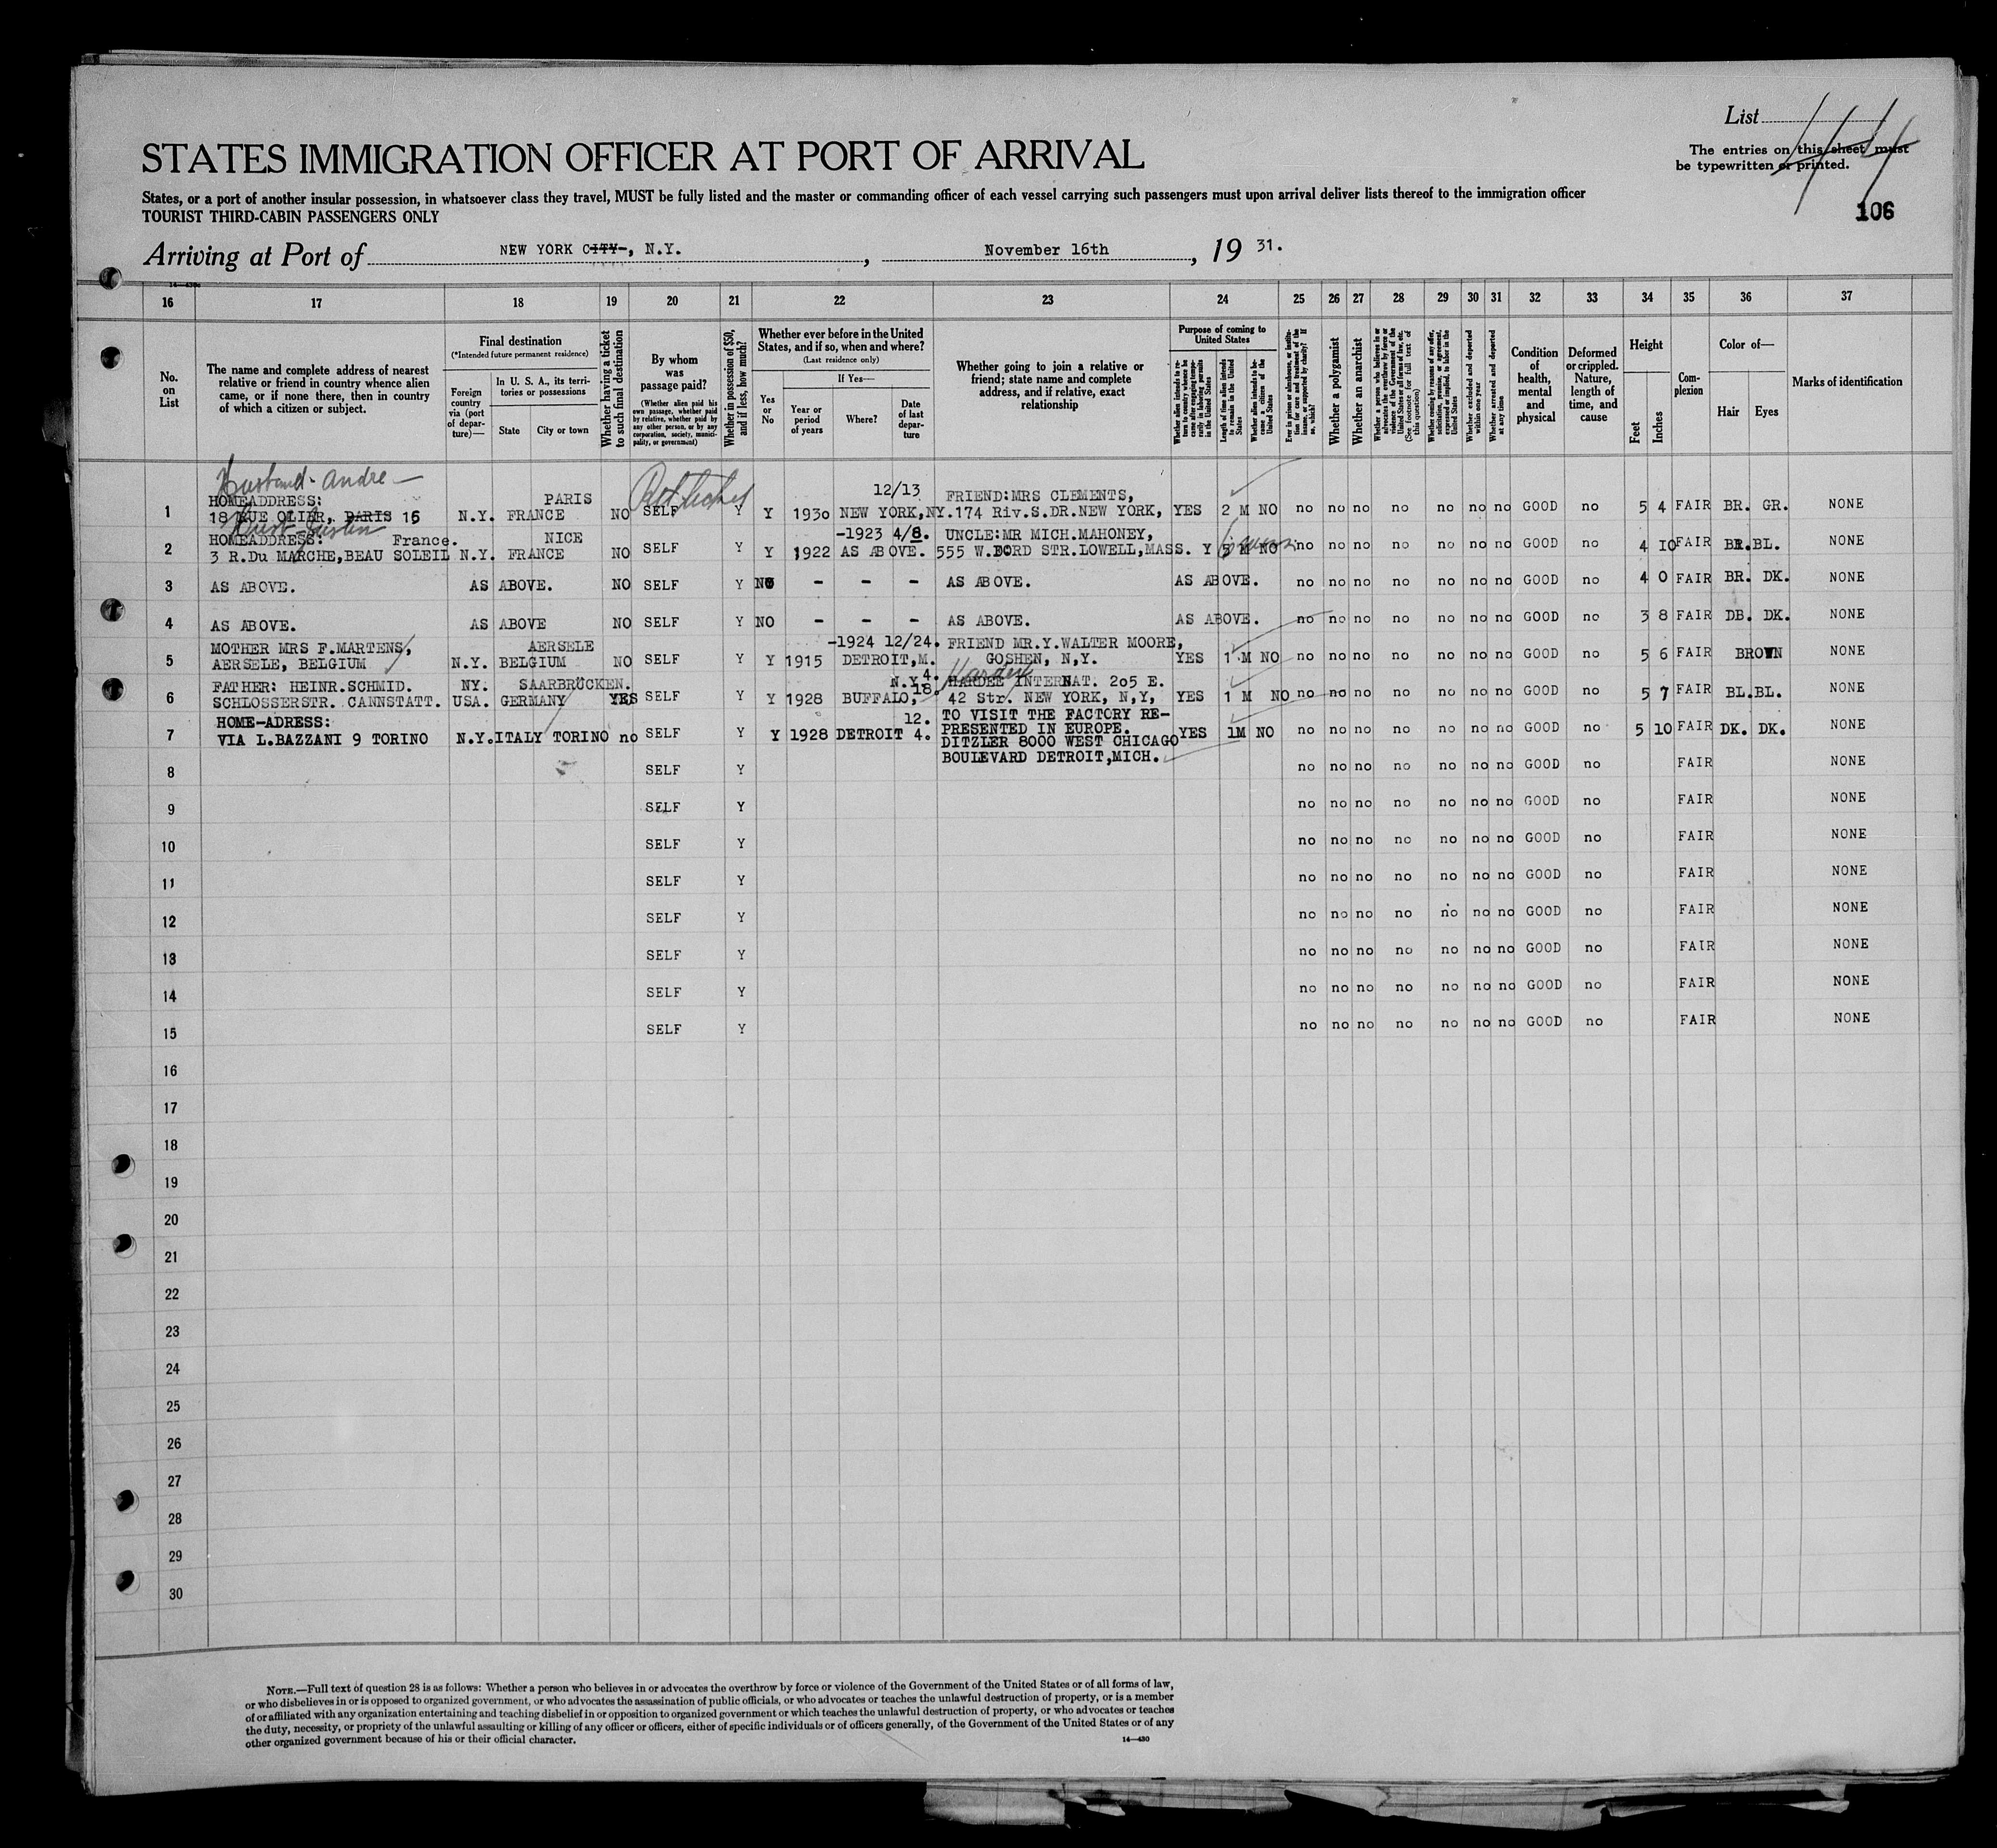 List
The entries on this sheet must
be typewritten or printed.
44
106
STATES IMMIGRATION OFFICER AT PORT OF ARRIVAL
States, or a port of another insular possession, in whatsoever class they travel, MUST be fully listed and the master or commanding officer of each vessel carrying such passengers must upon arrival deliver lists thereof to the immigration officer
TOURIST THIRD-CABIN PASSENGERS ONLY
Arriving at Port of NEW YORK CITY-, N.Y. , November 16th , 19 31.
16 17 18 19 20 21 22 23 24 25 26 27 28 29 30 31 32 33 34 35 36 37
No. on List
The name and complete address of nearest relative or friend in country whence alien came, or if none there, then in country of which a citizen or subject.
Final destination
(*Intended future permanent residence)
Foreign country via (port of departure)—
In U. S. A., its territories or possessions
State
City or town
Whether having a ticket to such final destination
By whom was passage paid?
(Whether alien paid his own passage, whether paid by relative, whether paid by any other person, or by any corporation, society, municipality, or government)
Whether in possession of $50, and if less, how much?
Whether ever before in the United States, and if so, when and where?
(Last residence only)
Yes or No
If Yes—
Year or period of years
Where?
Date of last departure
Whether going to join a relative or friend; state name and complete address, and if relative, exact relationship
Purpose of coming to United States
Length of time alien intends to remain in the United States
Whether alien intends to become a citizen of the United States
Whether a polygamist
Whether an anarchist
Whether excluded and deported within one year
Whether arrested and deported at any time
Condition of health, mental and physical
Deformed or crippled. Nature, length of time, and cause
Height
Feet
Inches
Complexion
Color of—
Hair
Eyes
Marks of identification
Husband - Andre
HOMEADDRESS: PARIS 12/13 FRIEND:MRS CLEMENTS,
1 18 RUE OLIER, PARIS 15 N.Y. FRANCE NO SELF Y Y 1930 NEW YORK,NY.174 Riv.S.DR.NEW YORK, YES 2 M NO no no no no no no no GOOD no 5 4 FAIR BR. GR. NONE
HOMEADDRESS: France. NICE -1923 4/8. UNCLE:MR MICH.MAHONEY,
2 3 R.Du MARCHE,BEAU SOLEIL N.Y. FRANCE NO SELF Y Y 1922 AS ABOVE. 555 W.FORD STR.LOWELL,MASS. Y M NO no no no no no no no GOOD no 4 10 FAIR BR.BL. NONE
3 AS ABOVE. AS ABOVE. NO SELF Y NO - - - AS ABOVE. AS ABOVE. no no no no no no no GOOD no 4 0 FAIR BR. DK. NONE
4 AS ABOVE. AS ABOVE NO SELF Y NO - - - AS ABOVE. AS ABOVE. no no no no no no no GOOD no 3 8 FAIR DB. DK. NONE
MOTHER MRS F.MARTENS, AERSELE -1924 12/24. FRIEND MR.Y.WALTER MOORE,
5 AERSELE, BELGIUM N.Y. BELGIUM NO SELF Y Y 1915 DETROIT,M. GOSHEN, N,Y. YES 1 M NO no no no no no no no GOOD no 5 6 FAIR BROWN NONE
FATHER: HEINR.SCHMID. NY. SAARBRÜCKEN. N.Y. 4. HARDEE INTERNAT. 205 E.
6 SCHLOSSERSTR. CANNSTATT. USA. GERMANY YES SELF Y Y 1928 BUFFALO, 18. 42 Str. NEW YORK, N,Y, YES 1 M NO no no no no no no no GOOD no 5 7 FAIR BL.BL. NONE
HOME-ADRESS: 12. TO VISIT THE FACTORY RE-
7 VIA L.BAZZANI 9 TORINO N.Y.ITALY TORINO no SELF Y Y 1928 DETROIT 4. PRESENTED IN EUROPE. YES 1M NO no no no no no no no GOOD no 5 10 FAIR DK. DK. NONE
DITZLER 8000 WEST CHICAGO
BOULEVARD DETROIT,MICH.
8 SELF Y no no no no no no no GOOD no FAIR NONE
9 SELF Y no no no no no no no GOOD no FAIR NONE
10 SELF Y no no no no no no no GOOD no FAIR NONE
11 SELF Y no no no no no no no GOOD no FAIR NONE
12 SELF Y no no no no no no no GOOD no FAIR NONE
13 SELF Y no no no no no no no GOOD no FAIR NONE
14 SELF Y no no no no no no no GOOD no FAIR NONE
15 SELF Y no no no no no no no GOOD no FAIR NONE
16
17
18
19
20
21
22
23
24
25
26
27
28
29
30
NOTE.—Full text of question 28 is as follows: Whether a person who believes in or advocates the overthrow by force or violence of the Government of the United States or of all forms of law,
or who disbelieves in or is opposed to organized government, or who advocates the assassination of public officials, or who advocates or teaches the unlawful destruction of property, or is a member
of or affiliated with any organization entertaining and teaching disbelief in or opposition to organized government or which teaches the unlawful destruction of property, or who advocates or teaches
the duty, necessity, or propriety of the unlawful assaulting or killing of any officer or officers, either of specific individuals or of officers generally, of the Government of the United States or of any
other organized government because of his or their official character.
14—430